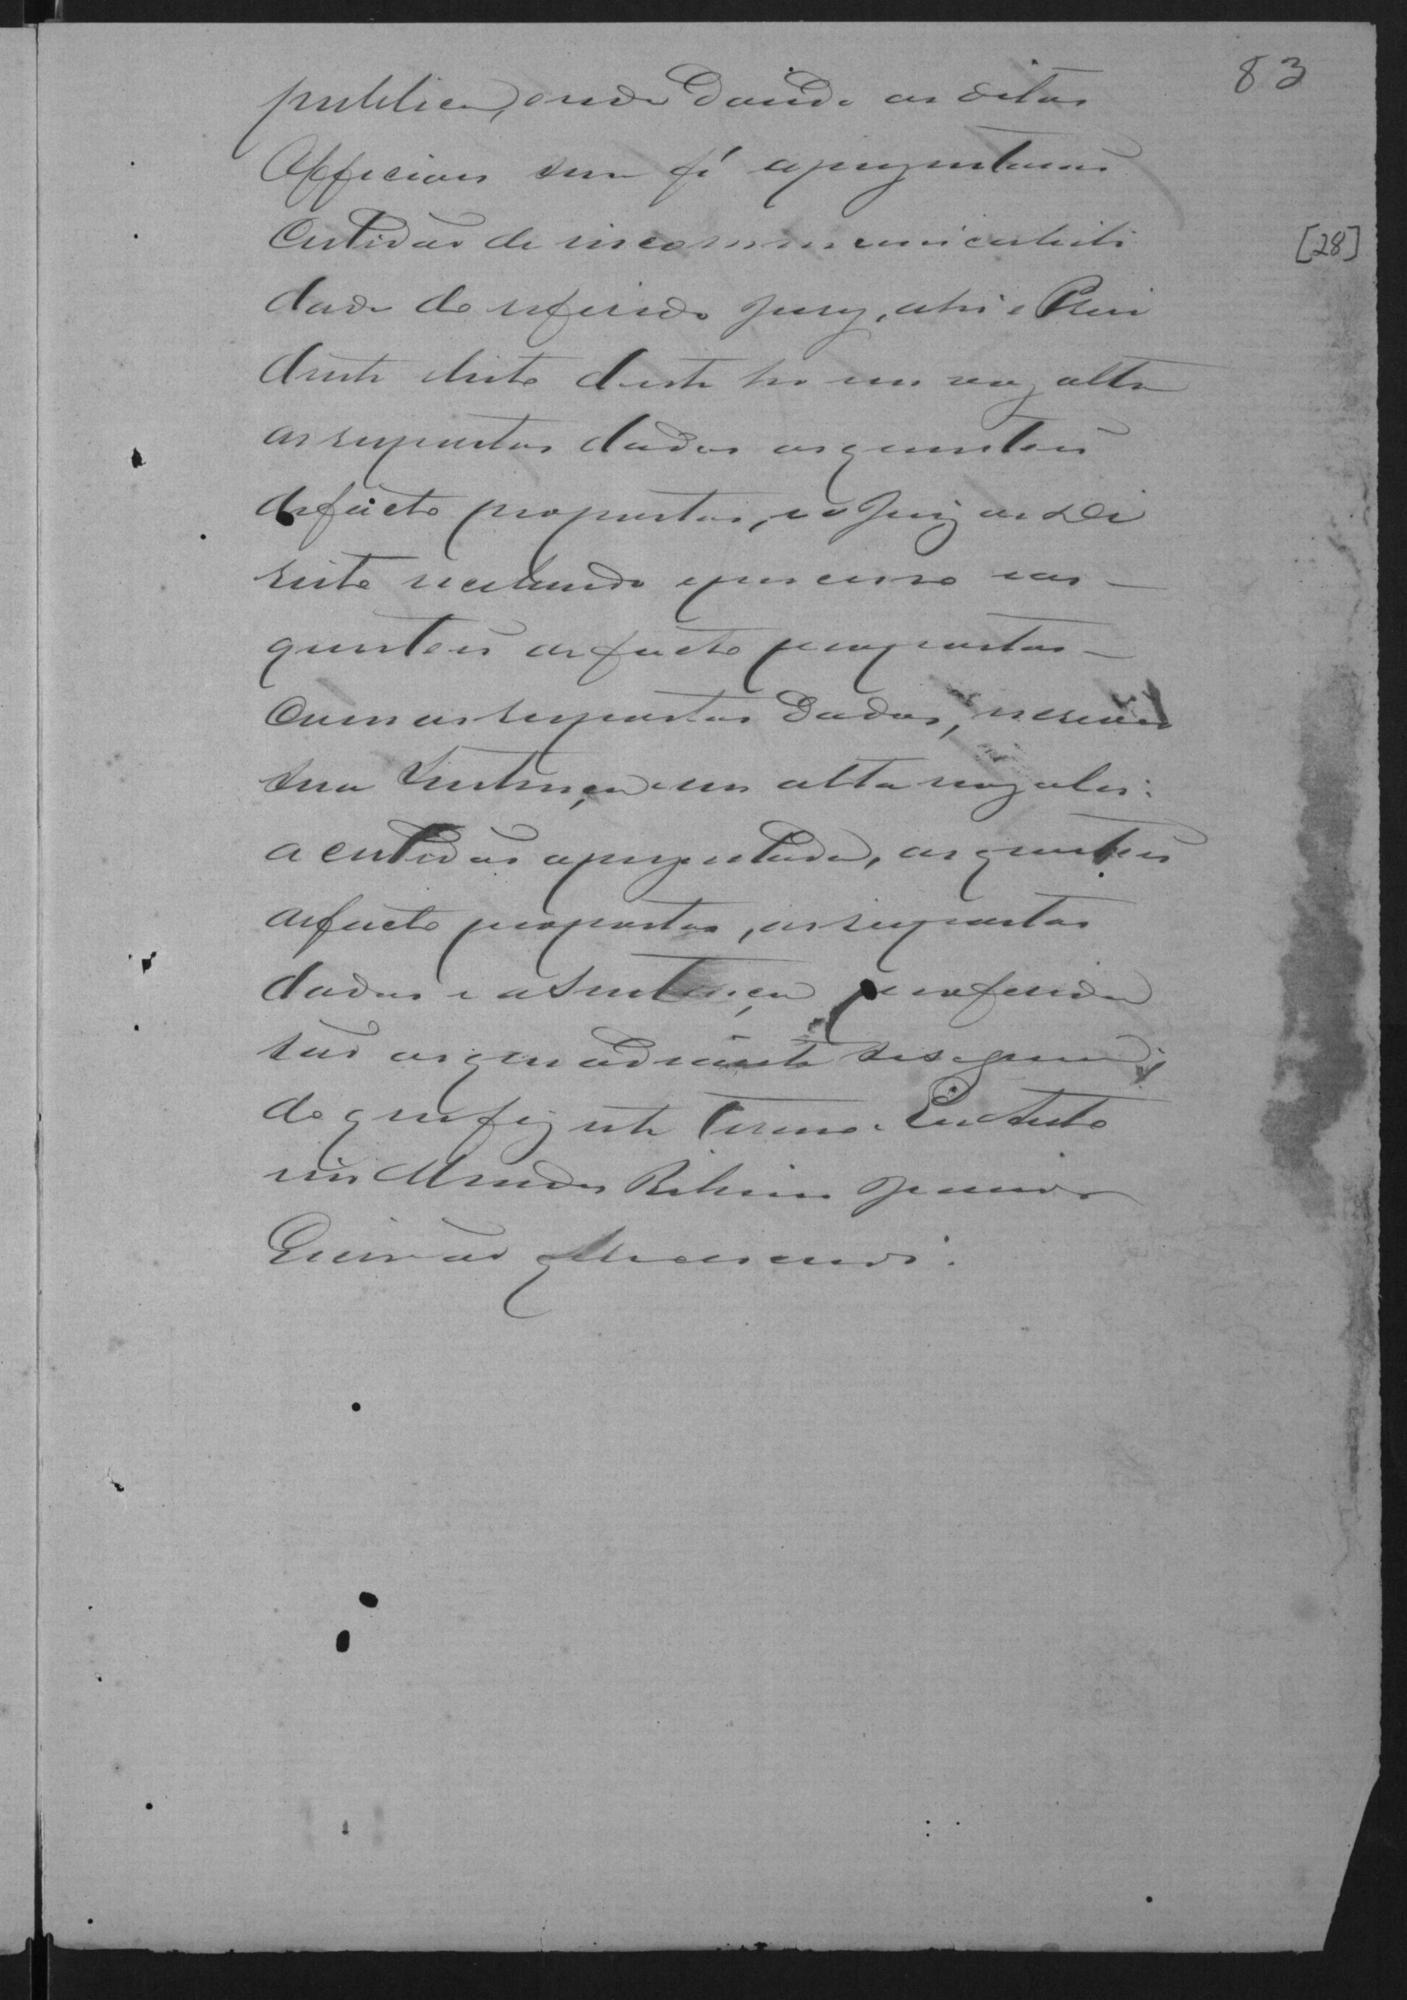 83
publica, onde dando os ditos
Officiaes sua fé apresentaram
Certidão de incommunicabili
[28]
dade do referido Jury, ahi o Presi
dente deste leu em voz alta
as respostas dadas as questões
de facto propostas, e o Juiz de Di
reito recebendo o processo e as
questões de facto propostas
com as respostas dadas,
sua Sentença em alta voz
a certidão apresentada, as questões
de facto propostas, as respostas
dadas e a Sentença proferida
são as que adiante se seguem;
do que fiz este Termo. Eu
Mendes Ribeiro
Escrivão q escrevi.